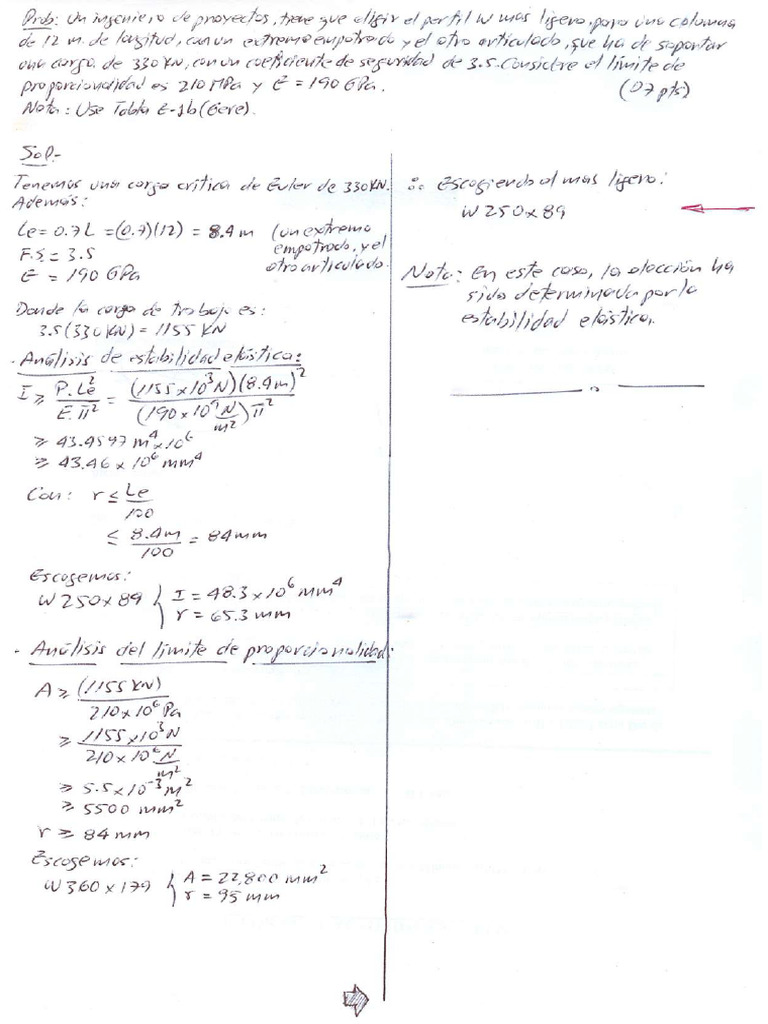 Prob: Un ingeniero de proyectos, tiene que eligir el perfil W mas ligero, para una columna
de 12 m. de longitud, con un extremo empotrado y el otro articulado, que ha de soportar
una carga de 330 KN, con un coeficiente de seguridad de 3.5. Considere el límite de
proporcionalidad es 210 MPa y E = 190 GPa. (07 pts)
Nota: Use Tabla E-1b (Gere).
Sol.-
Tenemos una carga crítica de Euler de 330 KN.
Además:
Le = 0.7 L = (0.7)(12) = 8.4 m (un extremo
empotrado, y el
otro articulado.
F.S = 3.5
E = 190 GPa
Donde la carga de trabajo es:
3.5 (330 KN) = 1155 KN
- Análisis de estabilidad elástica:
I ≥ P.Le²/E.π² = (1155 x 10³ N)(8.4 m)²/(190 x 10⁹ N/m²) π²
≥ 43.4597 m⁴ x 10⁶
≥ 43.46 x 10⁶ mm⁴
Con: r ≤ Le/100
≤ 8.4m/100 = 84 mm
Escogemos:
W 250 x 89 { I = 48.3 x 10⁶ mm⁴
r = 65.3 mm
- Análisis del límite de proporcionalidad:
A ≥ (1155 KN)/210 x 10⁶ Pa
≥ 1155 x 10³ N/210 x 10⁶ N/m²
≥ 5.5 x 10⁻³ m²
≥ 5500 mm²
r ≥ 84 mm
Escogemos:
W 360 x 179 { A = 22,800 mm²
r = 95 mm
∴ Escogiendo al mas ligero:
W 250 x 89
Nota: En este caso, la elección ha
sido determinada por la
estabilidad elástica.